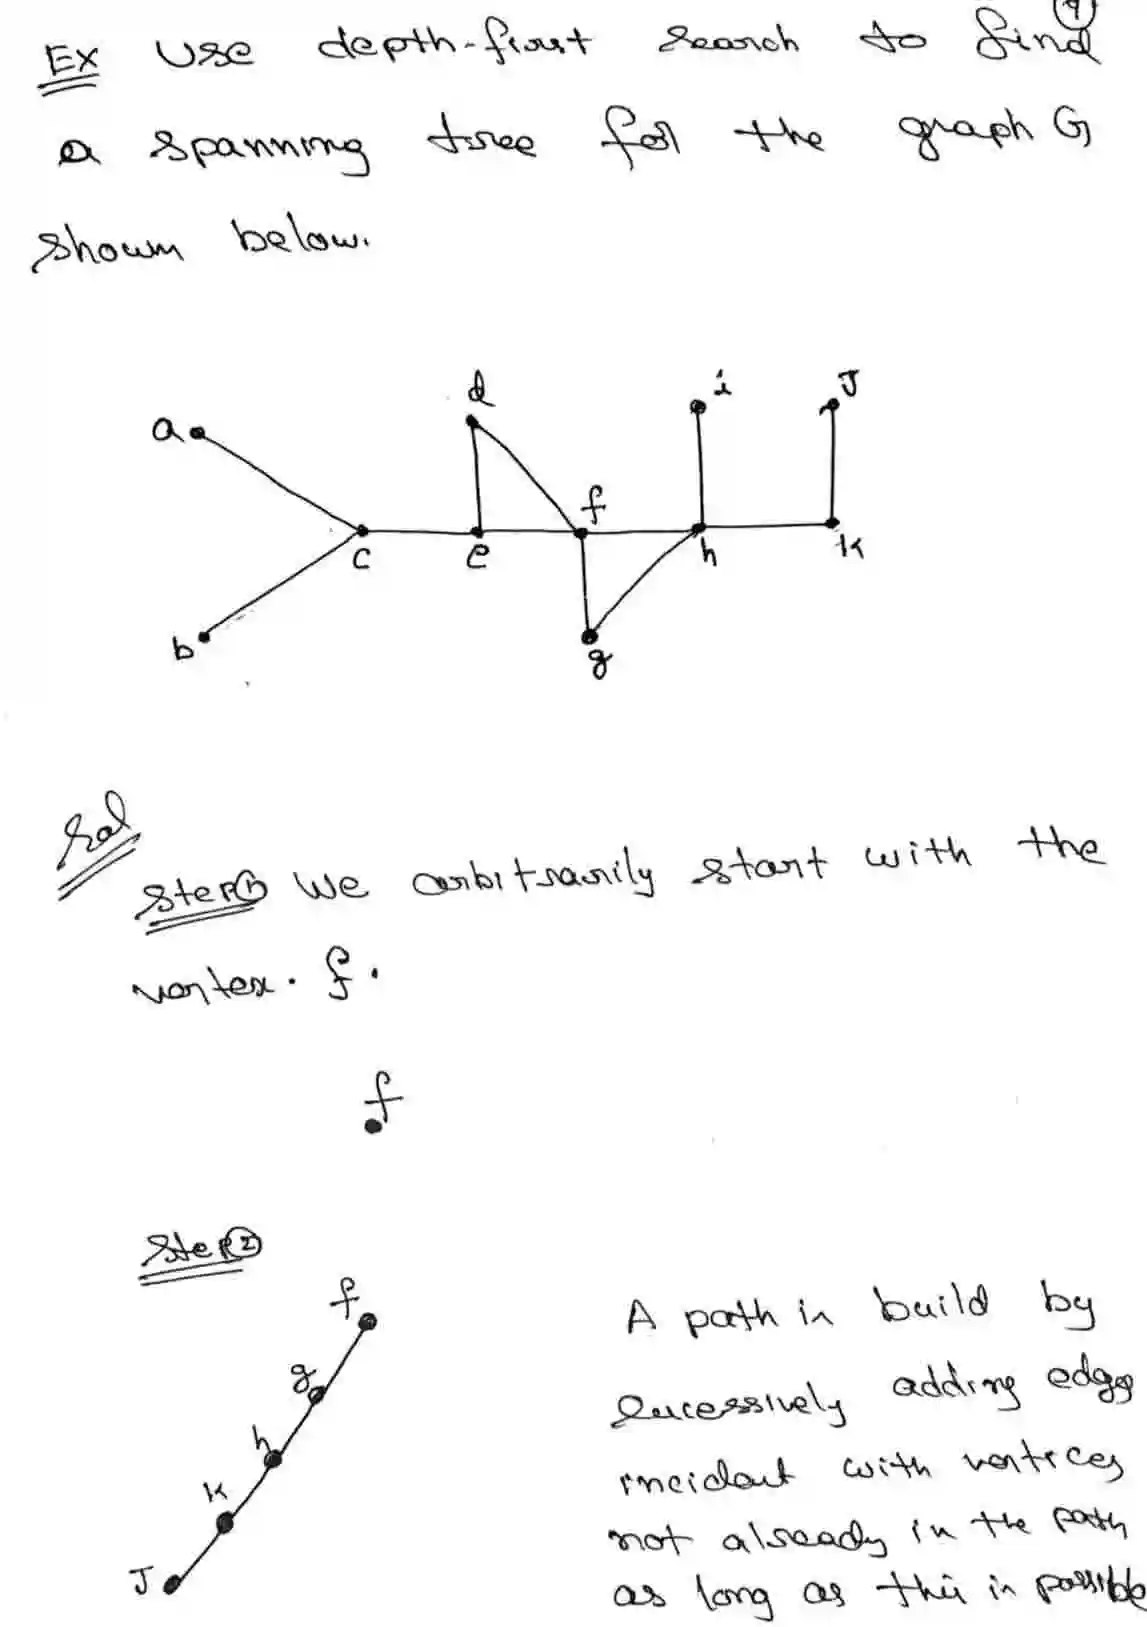 9
Ex Use depth-first search to find
a spanning tree for the graph G
shown below.
d i J
a
f
c e h k
b
g
Sol
Step 1 We arbitrarily start with the
vertex. f.
f
Step 2
f
g
h
k
J
A path is build by
sucessively adding edges
incident with vertices
not already in the path
as long as this is possible